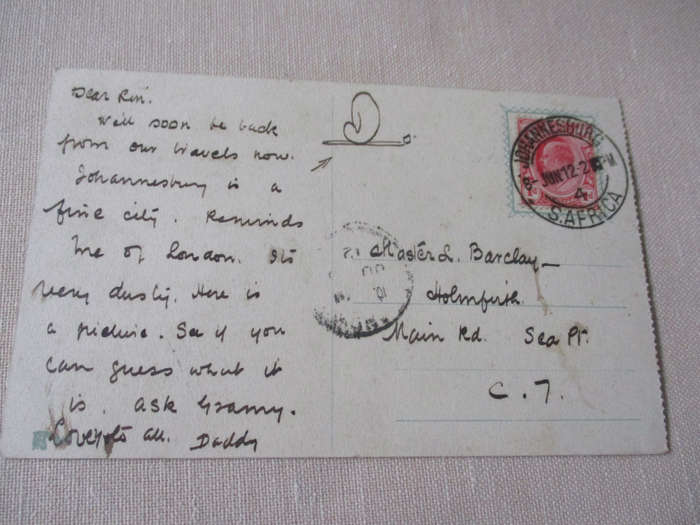 Dear Rin.
We'll soon be back
from our travels now.
Johannesburg is a
fine city. Reminds
me of London. Its
very dusty. Here is
a picture. See if you
can guess what it
is. Ask Granny.
Love to all. Daddy
JOHANNESBURG
8 JUN 12-2 PM
4
S. AFRICA
Master L. Barclay
Holmfirth
Main Rd. Sea Pt.
C. T.